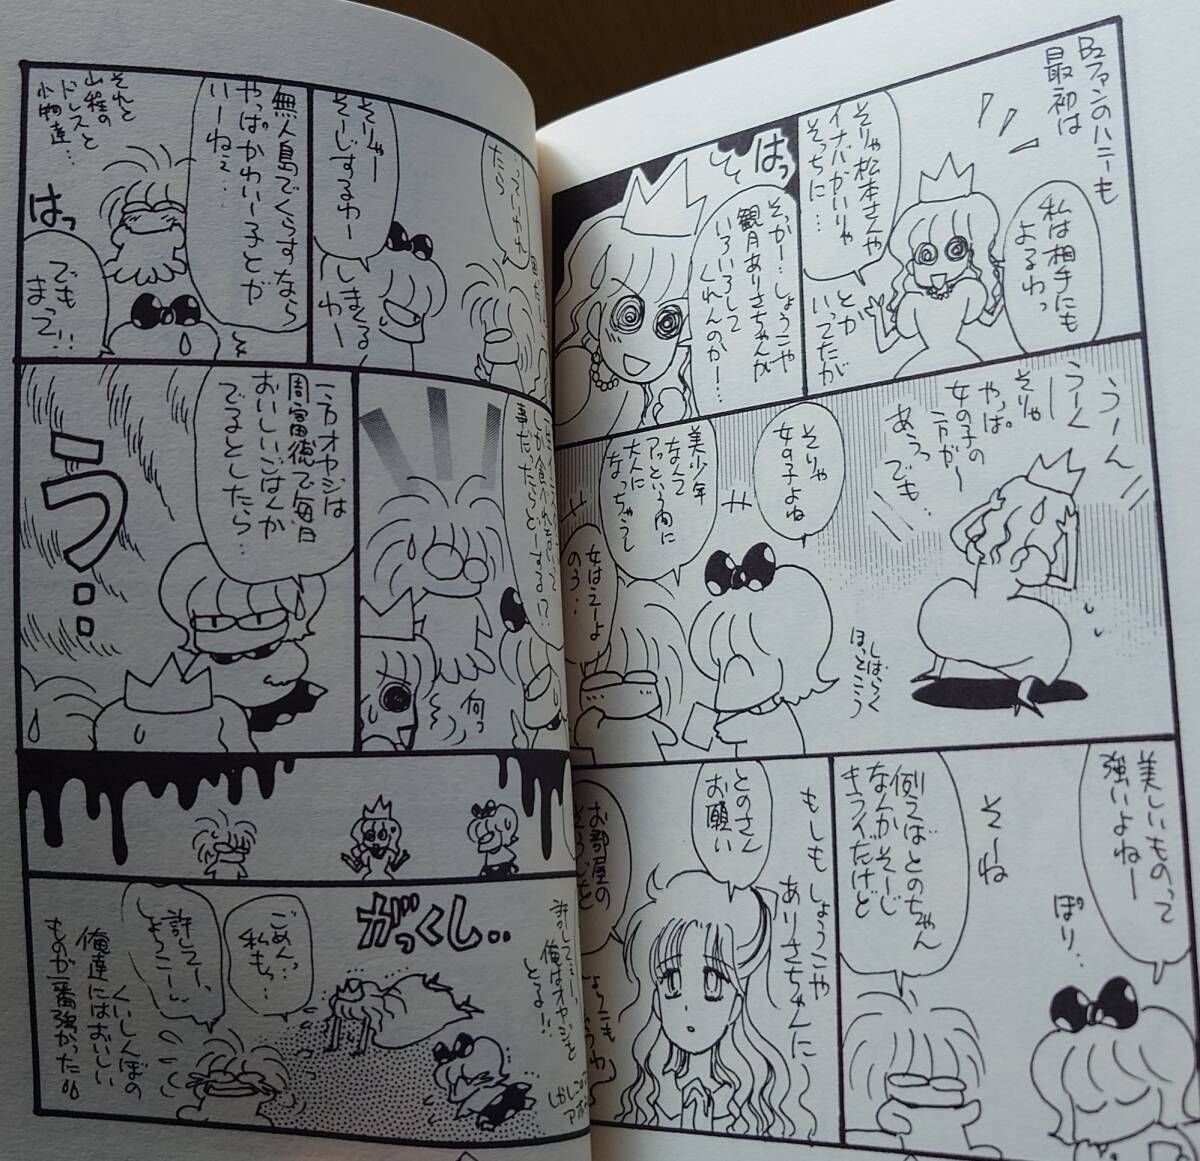 B2ファンのハニーも
最初は
私は相手にも
よるわっ
そりゃ松本さんや
イナバかいりゃ
そっちに…
とか
いってたが
はっ
そっかー…しょうこや
観月ありさちゃんが
いろいろして
くれんのかー!
うーん
うーく
そりゃ
やっぱ
女の子の
方がー
あうっでも
しばらく
ほっとこう
そりゃ
女の子よね
美少年
なんて
アッという間に
大人に
なっちゃうし
女はえーよ
のう…
美しいものって
強いよねー
ぽり…
そーね
例えばとのちゃん
なんかそーじ
キライだけど
もしもしょうこや
ありさちゃんに
とのさん
お願い
お部屋の
たら
そりゃー
そーじするわー
しまくる
わー
無人島でくらすなら
やっぱかわいー子とが
いーねぇ…
それと
山程の
ドレスと
小物達…
はっ
でも
まって!!
事だったらどーする!?
何っ
一方オヤジは
周富徳で毎日
おいしいごはんが
でるとしたら…
う…
がっくし..
許してミーっ
俺はオヤジを
とるよ!!
ごめんっ
私もっ…
許してー、
しょうこーっ
くいしんぼの
俺達にはおいしい
ものが一番強かった!!